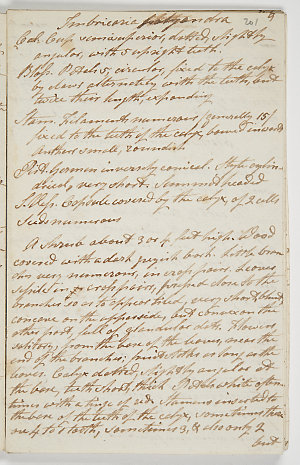 Imbricaria polyandra 201 9
Cal. Cup semisuperior, dotted, slightly
angular, with 5 upright teeth.
Bloss. Petals 5, circular, fixed to the calyx
by claws alternately with the teeth, but
twice their length, expanding
Stam. Filaments numerous, (generally 15)
fixed to the teeth of the calyx, bowed inwards
anthers small, roundish
Pist. Germen inversely conical. Style cylin-
drical, very short. Summit headed
S. Ves. Capsule covered by the calyx, of 2 cells
Seeds numerous
A Shrub about 3 or 4 feet high. Wood
covered with a dark greyish bark. Little bran-
ches very numerous, in cross pairs. Leaves
sessile in cross pairs, pressed close to the
branches so as to appear tiled, very short, blunt
concave on the upper side, but convex on the
other part, full of glandular dots. Flowers
solitary, from the base of the leaves, near the
end of the branches; fruitstalks as long as the
leaves. Calyx dotted, slightly angular at
the base, teeth short, thick. Petals white often-
times with a tinge of red. Stamens inserted to
the base of the teeth of the calyx, sometimes there
are 4 to 1 tooth, sometimes 3, & also only 2
but